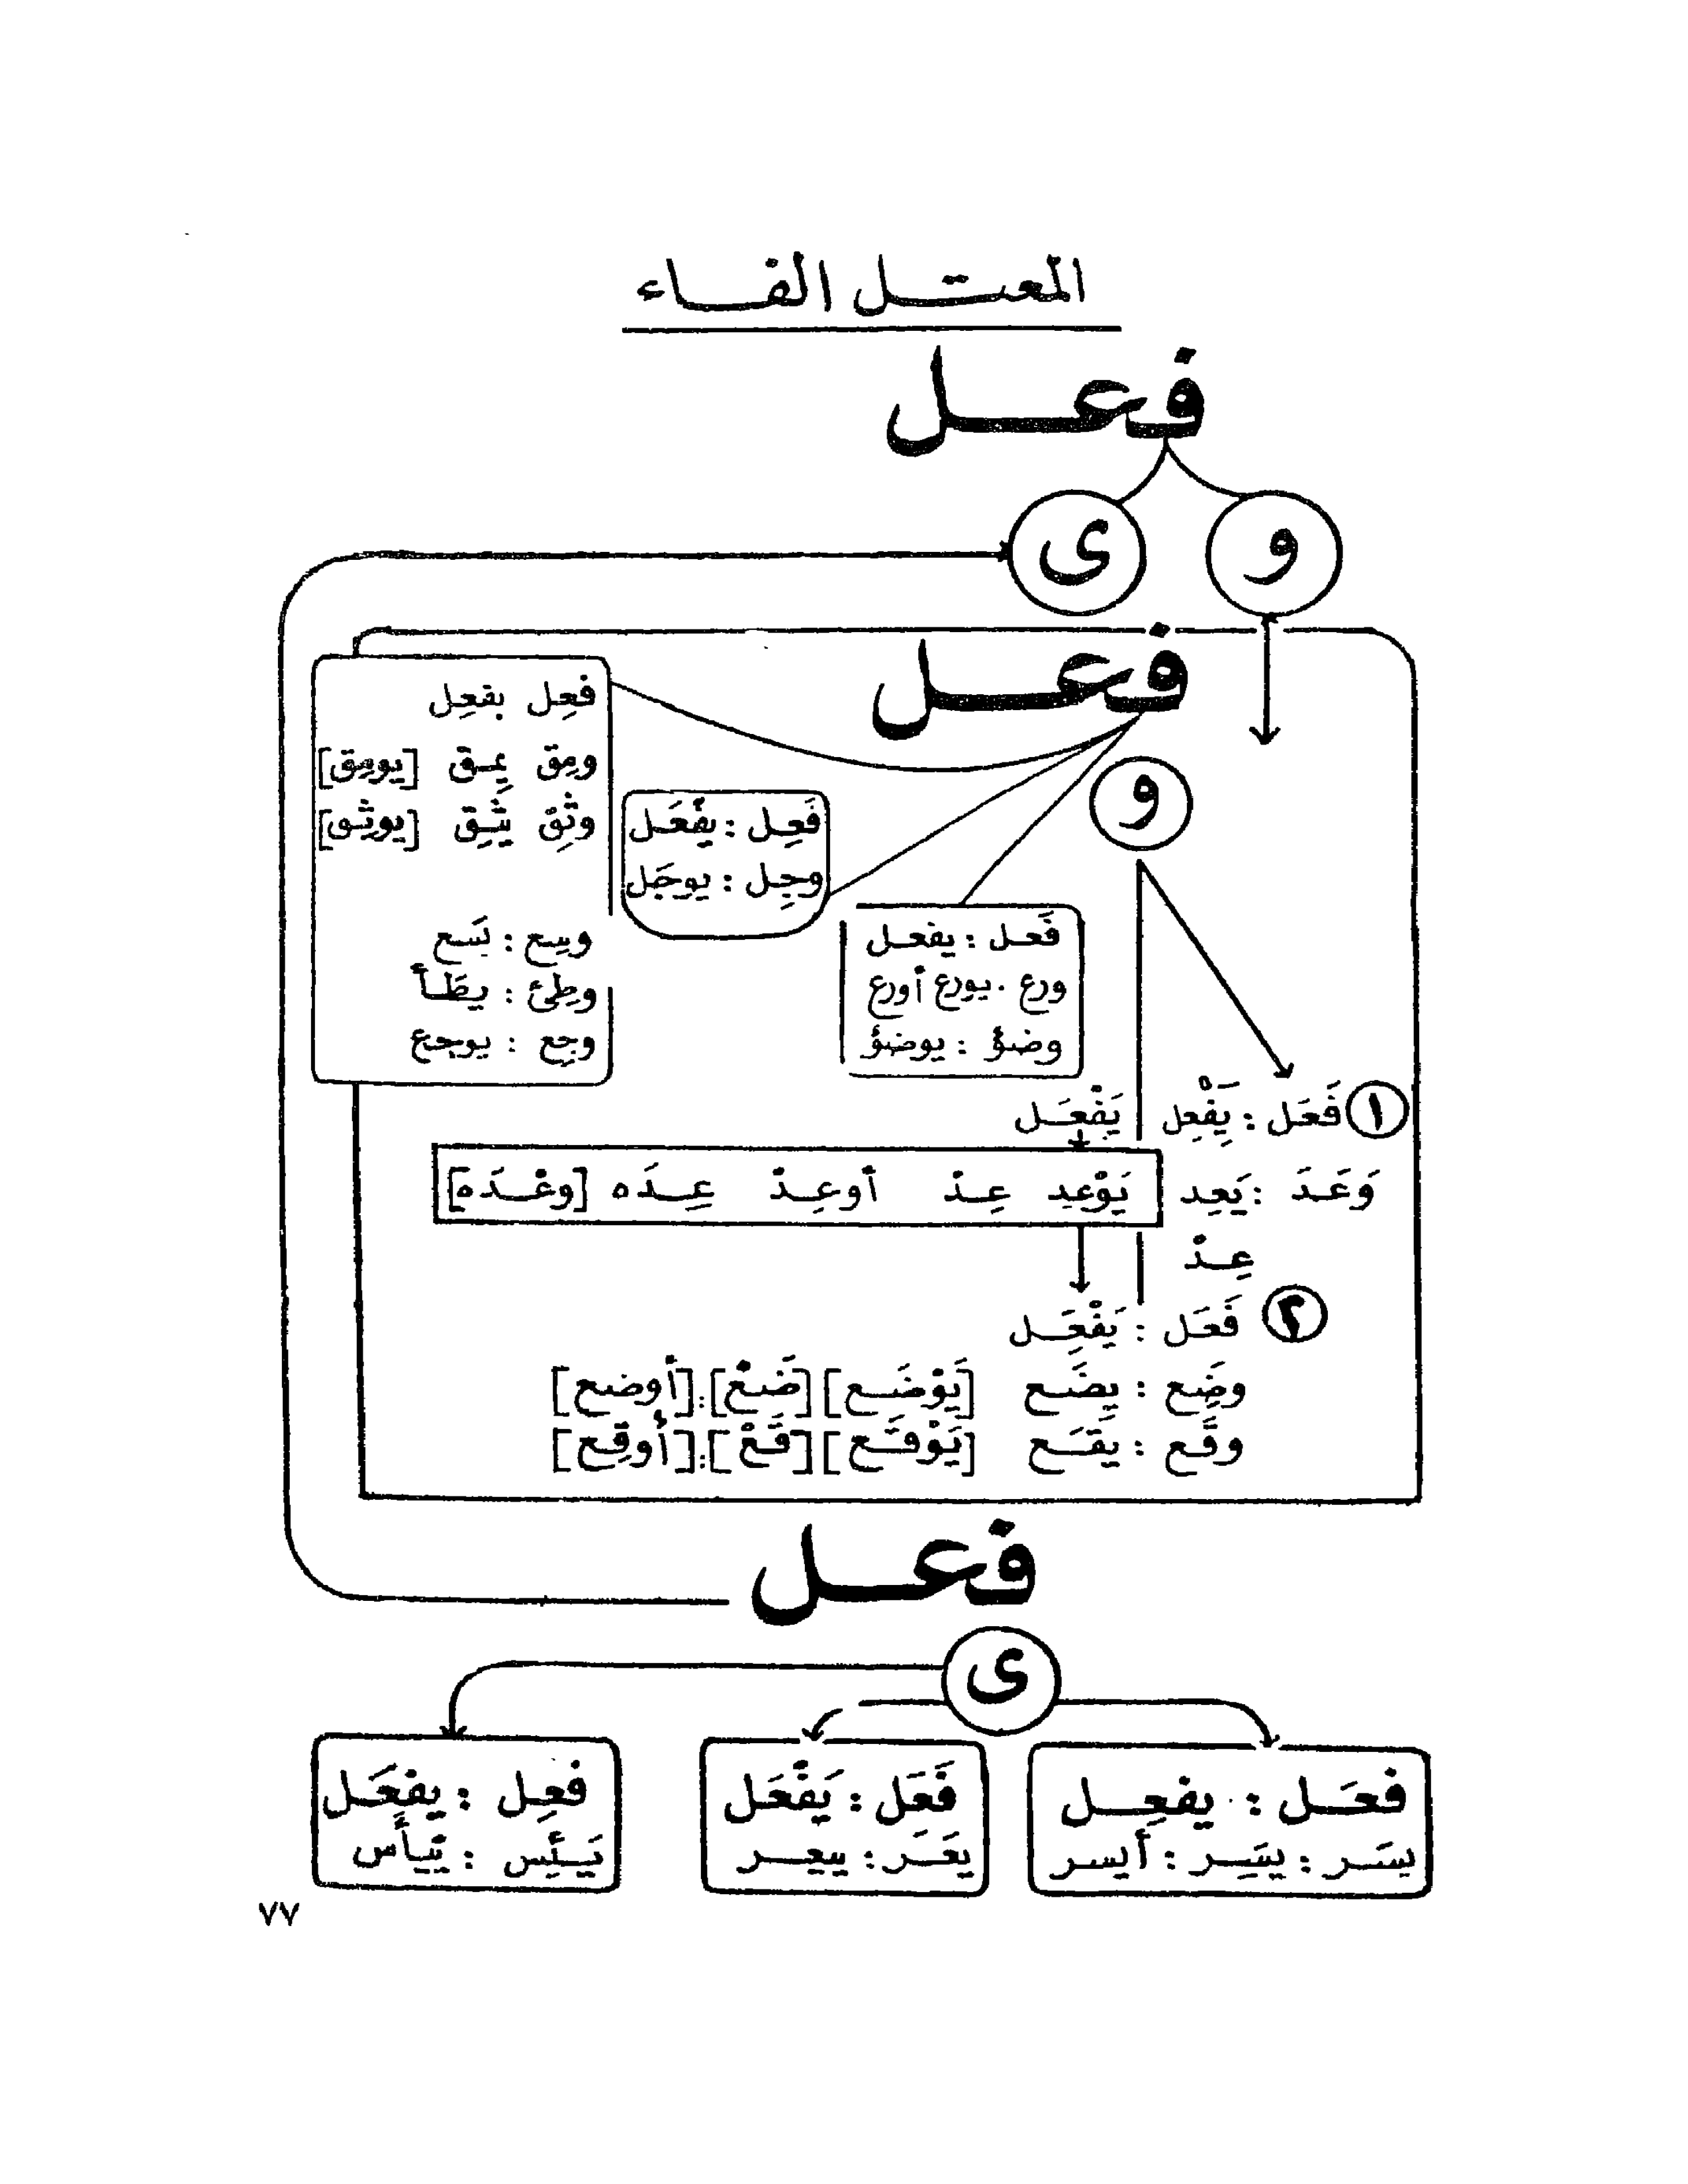 المعتل الفاء
فعل
و ى
فعل
فعِل يفعِل
ومِق يمِق [يومِق]
وثِق يثِق [يوثِق]
وسِع : يسَع
وطِئ : يطَأ
وجِع : يوجع
فَعِل : يفْعَل
وجِل : يوجَل
و
فَعل : يفعل
ورع . يورع أورع
وضؤ : يوضؤ
١ فَعَل : يَفْعِل يَفْعَل
وَعَدَ : يَعِد يَوْعِد عِدْ أوعِدْ عِدَه [وعْدَه]
عِدْ
٢ فَعَل : يَفْعَل
وضَع : يضَع [يَوْضَع] [ضَعْ] : [أوضع]
وقَع : يقَع [يَوْقَع] [قَعْ] : [أوقع]
فعل
ى
فعَل : يفعِل
يسَر : ييسِر : أيسر
فَعَل : يَفْعَل
يعَر : ييعر
فعِل : يفعَل
يَئِس : ييأَس
٧٧